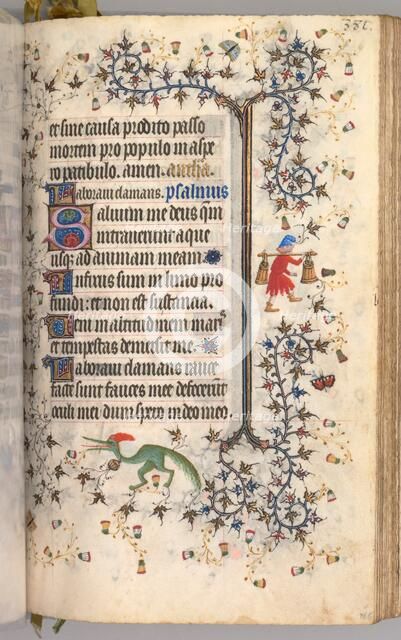 386
et sine causa prodito passo
mortem pro populo in aspe
ro patibulo. amen. antiha.
Laboraui clamans. psalmus
Saluum me deus qm
intrauerunt aque
usq; ad animam meam
Infixus sum in limo pro
fundi: et non est substancia.
Ueni in altitudinem maris
et tempestas demersit me.
Laboraui clamans rauce
facte sunt fauces mee defecerunt
oculi mei dum spero in deo meo
Heritage